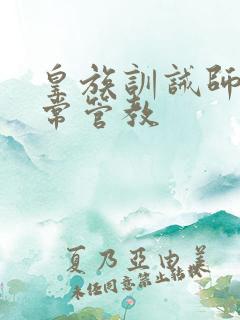 皇族訓誡師
常管教
夏乃亞由美
未任同意禁止转载